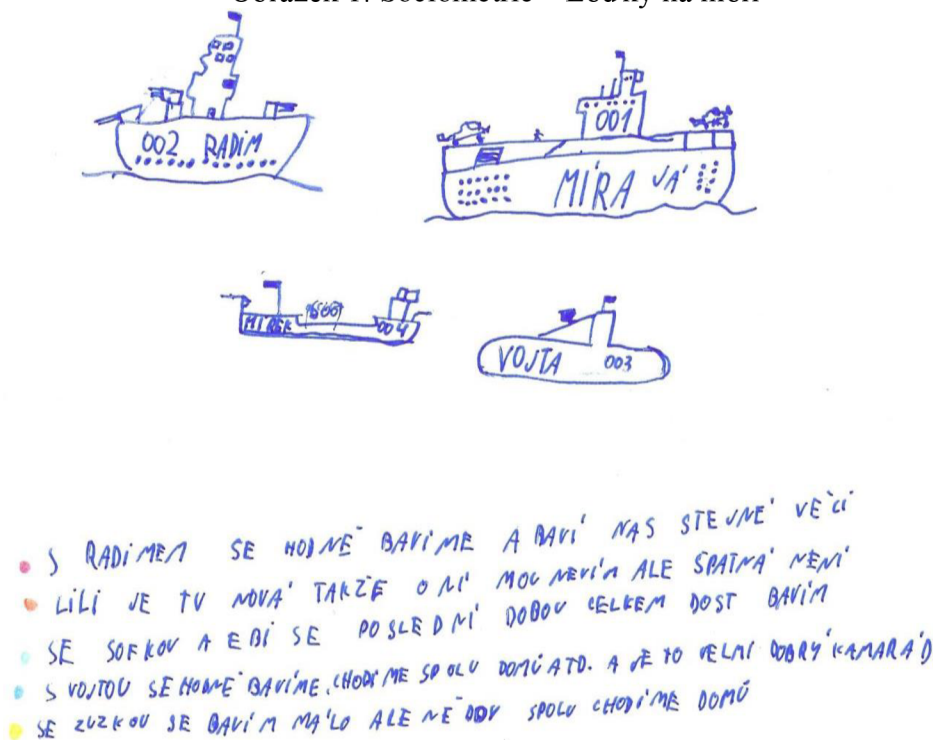 Obrázek 1: Sociometrie – Loďky na moři
002 RADIM
001
MÍRA JÁ
MIREK
004
VOJTA 003
S RADIMEM SE HODNĚ BAVÍME A BAVÍ NAS STEJNÉ VĚCI
LILI JE TU NOVÁ TAKŽE O NÍ MOC NEVÍM ALE ŠPATNÁ NENÍ
SE SOFKOU A EBI SE POSLEDNÍ DOBOU CELKEM DOST BAVÍM
S VOJTOU SE HODNĚ BAVÍME, CHODÍME SPOLU DOMŮ ATD. A JE TO VELMI DOBRÝ KAMARÁD
SE ZUZKOU SE BAVÍM MÁLO ALE SPOLU CHODÍME DOMŮ